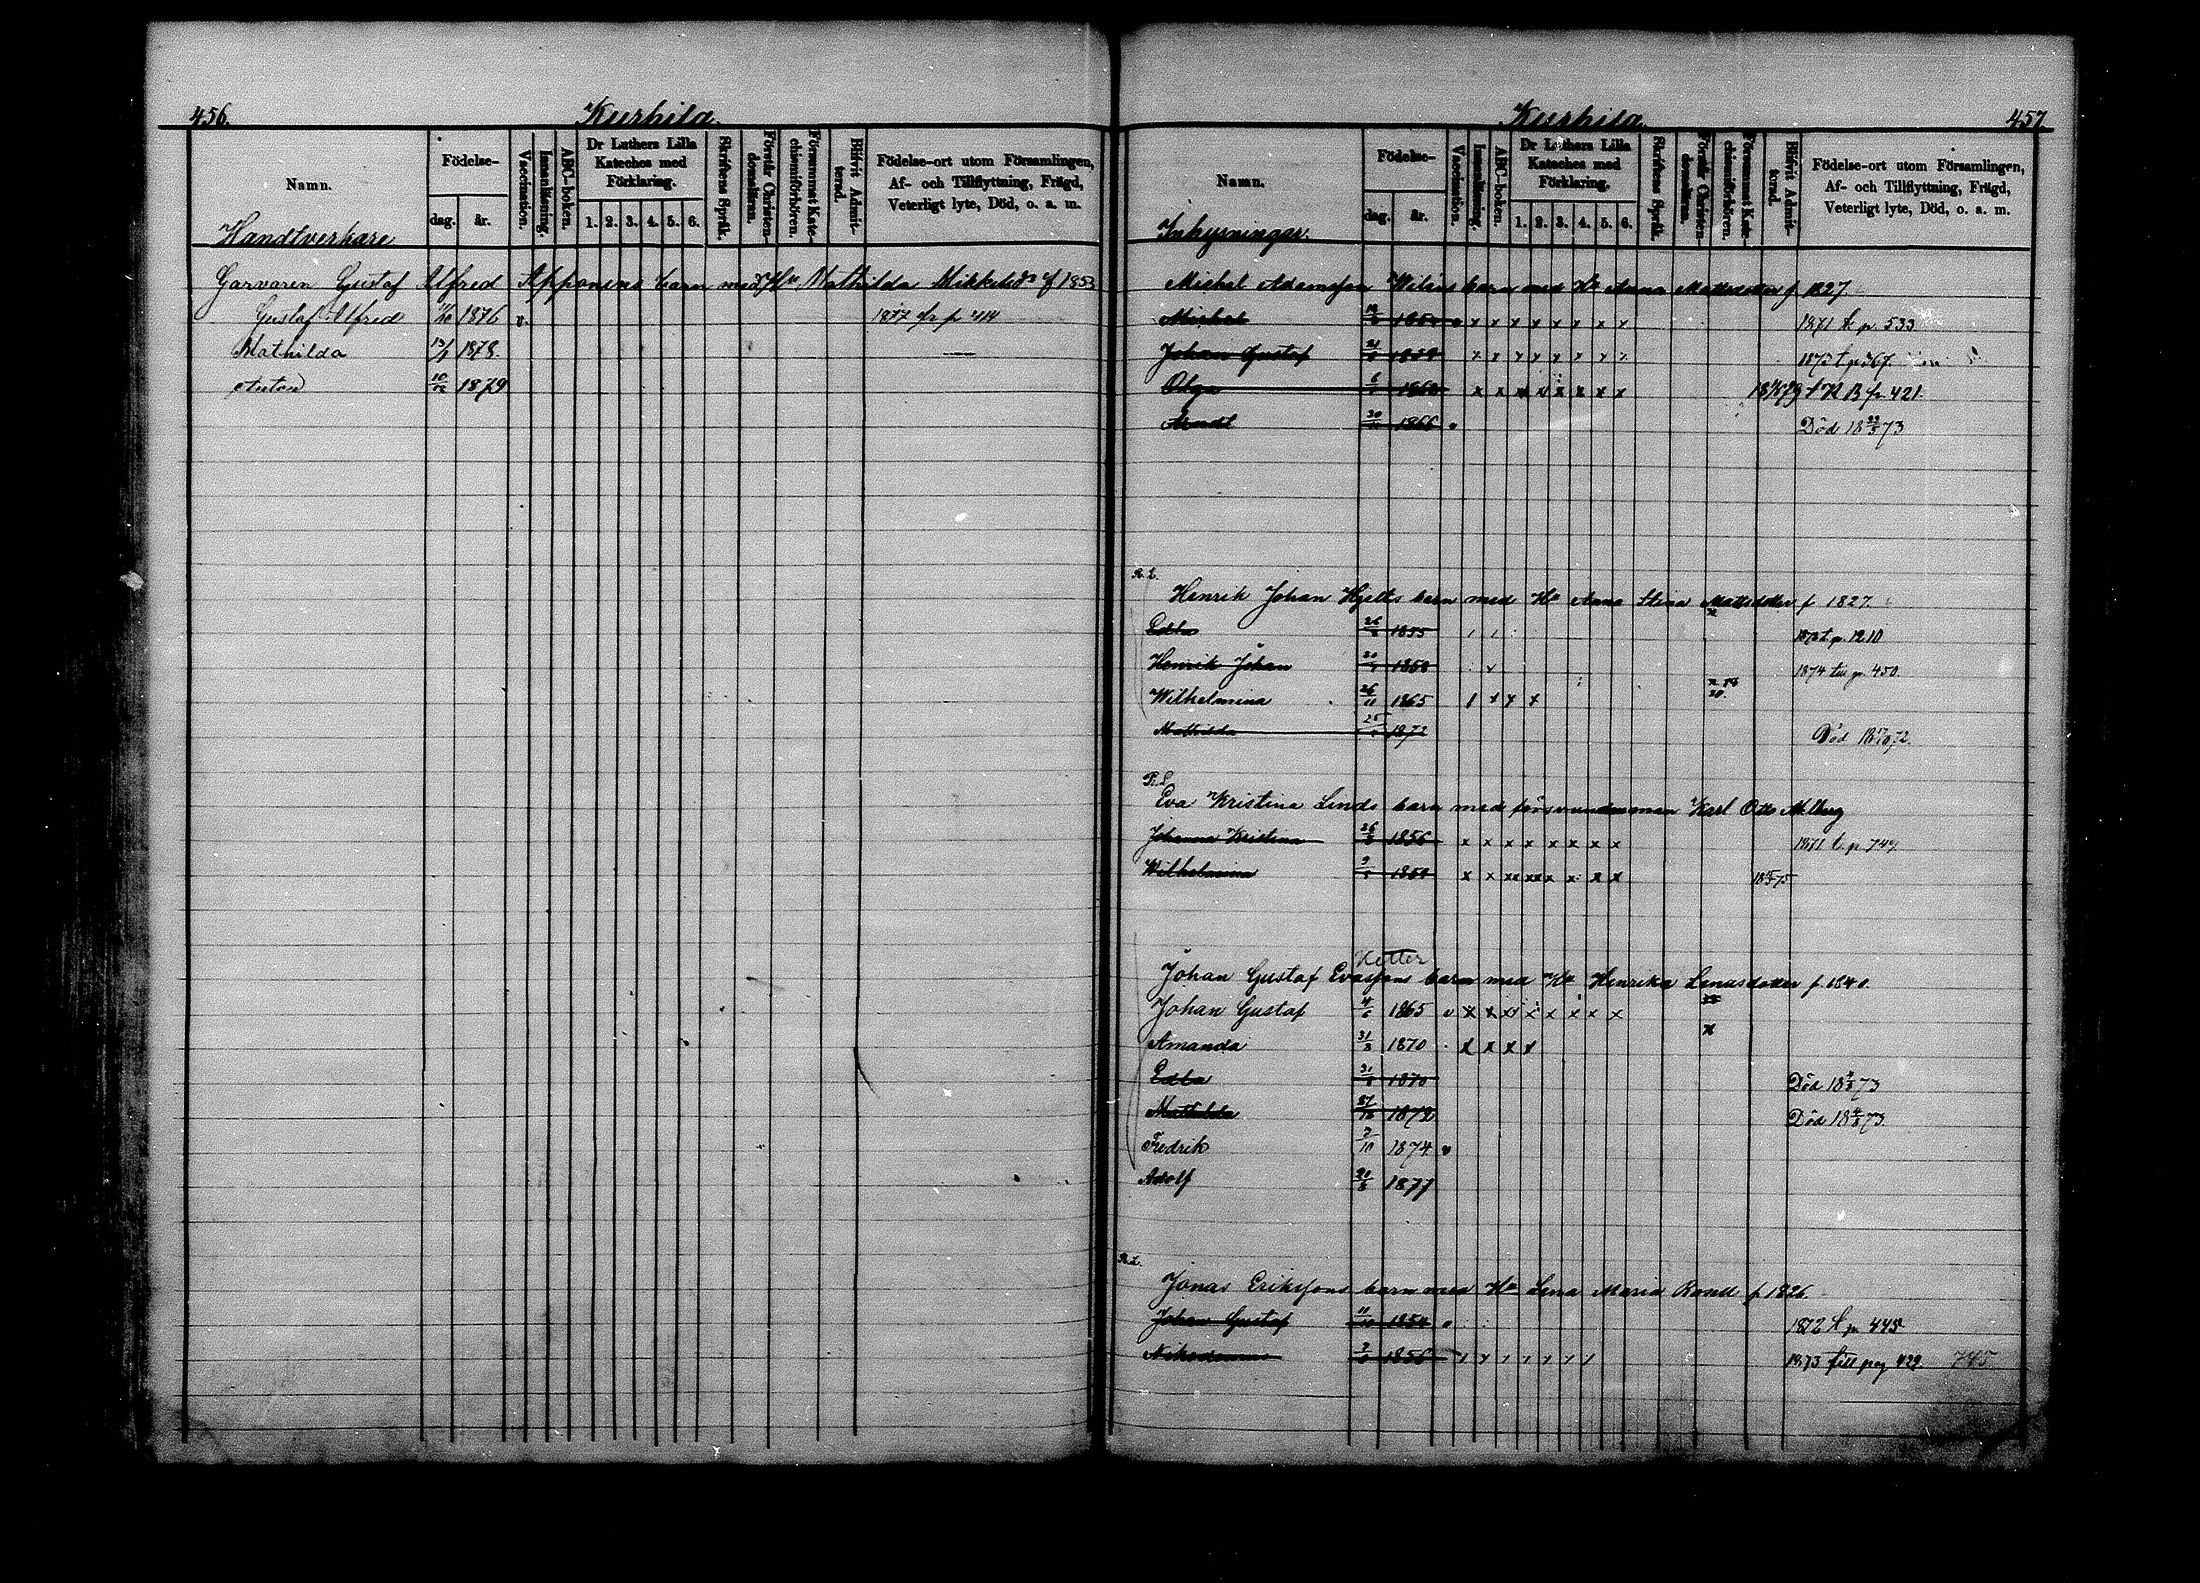 456. Kurhila.
Namn. Födelse- dag. år. Vaccination. Innanläsning. ABC-boken. Dr Luthers Lilla Kateches med Förklaring. 1. 2. 3. 4. 5. 6. Skriftens Språk. Förstår Christendomsläran. Försummat Katechismiförhören. Blifvit Admitterad. Födelse-ort utom Församlingen, Af- och Tillflyttning, Frägd, Veterligt lyte, Död, o. a. m.
Handtverkare
Garvaren Gustaf Alfred Apponens barn med Hu Mathilda Mikkelsdr f 1853
Gustaf Alfred 1876 v. 1877 fr p 414
Mathilda 1878.
Anton 10/12 1879
Kurhila 457
Namn. Födelse- dag. år. Vaccination. Innanläsning. ABC-boken. Dr Luthers Lilla Kateches med Förklaring. 1. 2. 3. 4. 5. 6. Skriftens Språk. Förstår Christendomsläran. Försummat Katechismiförhören. Blifvit Admitterad. Födelse-ort utom Församlingen, Af- och Tillflyttning, Frägd, Veterligt lyte, Död, o. a. m.
Inhysningar.
Michel Adamsson barn med Hu Anna Mattsdotter f 1827
Michel x x x x x x x x 1871 t. p. 533
Johan Gustaf 1859 x x x x x x x x
Olga x x x x x x x x 79 t N B p. 421.
1866 Död 18 73
R. L.
Henrik Johan Hjelts barn med Hu Anna Stina Mattsdotter f 1827.
Edla 1855 t. p. 1210
Henrik Johan 1858 1874 till p. 450.
Wilhelmina 26/11 1865 x x x
Mathilda 1872 Död 18 72.
Eva Kristina Linds barn med försvundne mannen Karl Otto Ahlberg
Johanna Kristina 1856 x x x x x x x x 1871 t. p. 749
Wilhelmina 1859 x x xx xx x x x x 18 75
Ketter
Johan Gustaf Evassons barn med Hu Henrika Linusdotter f. 1840.
Johan Gustaf 4/6 1865 v x x x x x x x x
Amanda 31/8 1870 x x x x
Edla 31/8 1870 Död 18 73
Mathilda 27/12 1872 Död 18 73.
Fredrik 7/10 1874 v
Adolf 21/8 1877
R. L.
Jonas Erikssons barn med Hu Lena Maria f 1826.
Johan Gustaf 1850 1872 t. p. 445
Nikodemus 1856 1873 till pag 429. 745